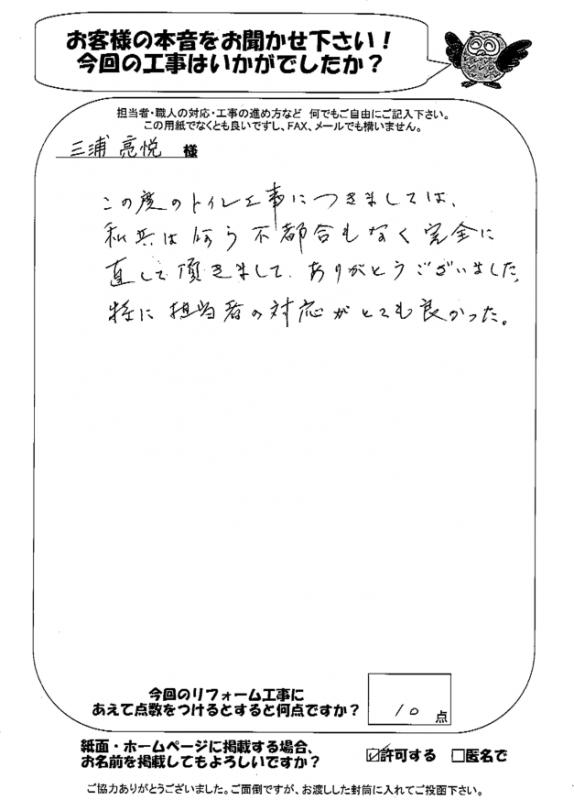 お客様の本音をお聞かせ下さい！
今回の工事はいかがでしたか？
担当者・職人の対応・工事の進め方など 何でもご自由にご記入下さい。
この用紙でなくとも良いですし、FAX、メールでも構いません。
三浦 亮悦 様
この度のトイレ工事につきましては、
私共は何ら不都合もなく完全に
直して頂きまして、ありがとうございました。
特に担当者の対応がとても良かった。
今回のリフォーム工事に
あえて点数をつけるとすると何点ですか？ 10 点
紙面・ホームページに掲載する場合、
お名前を掲載してもよろしいですか？ ☑許可する □匿名で
ご協力ありがとうございました。ご面倒ですが、お渡しした封筒に入れてご投函下さい。